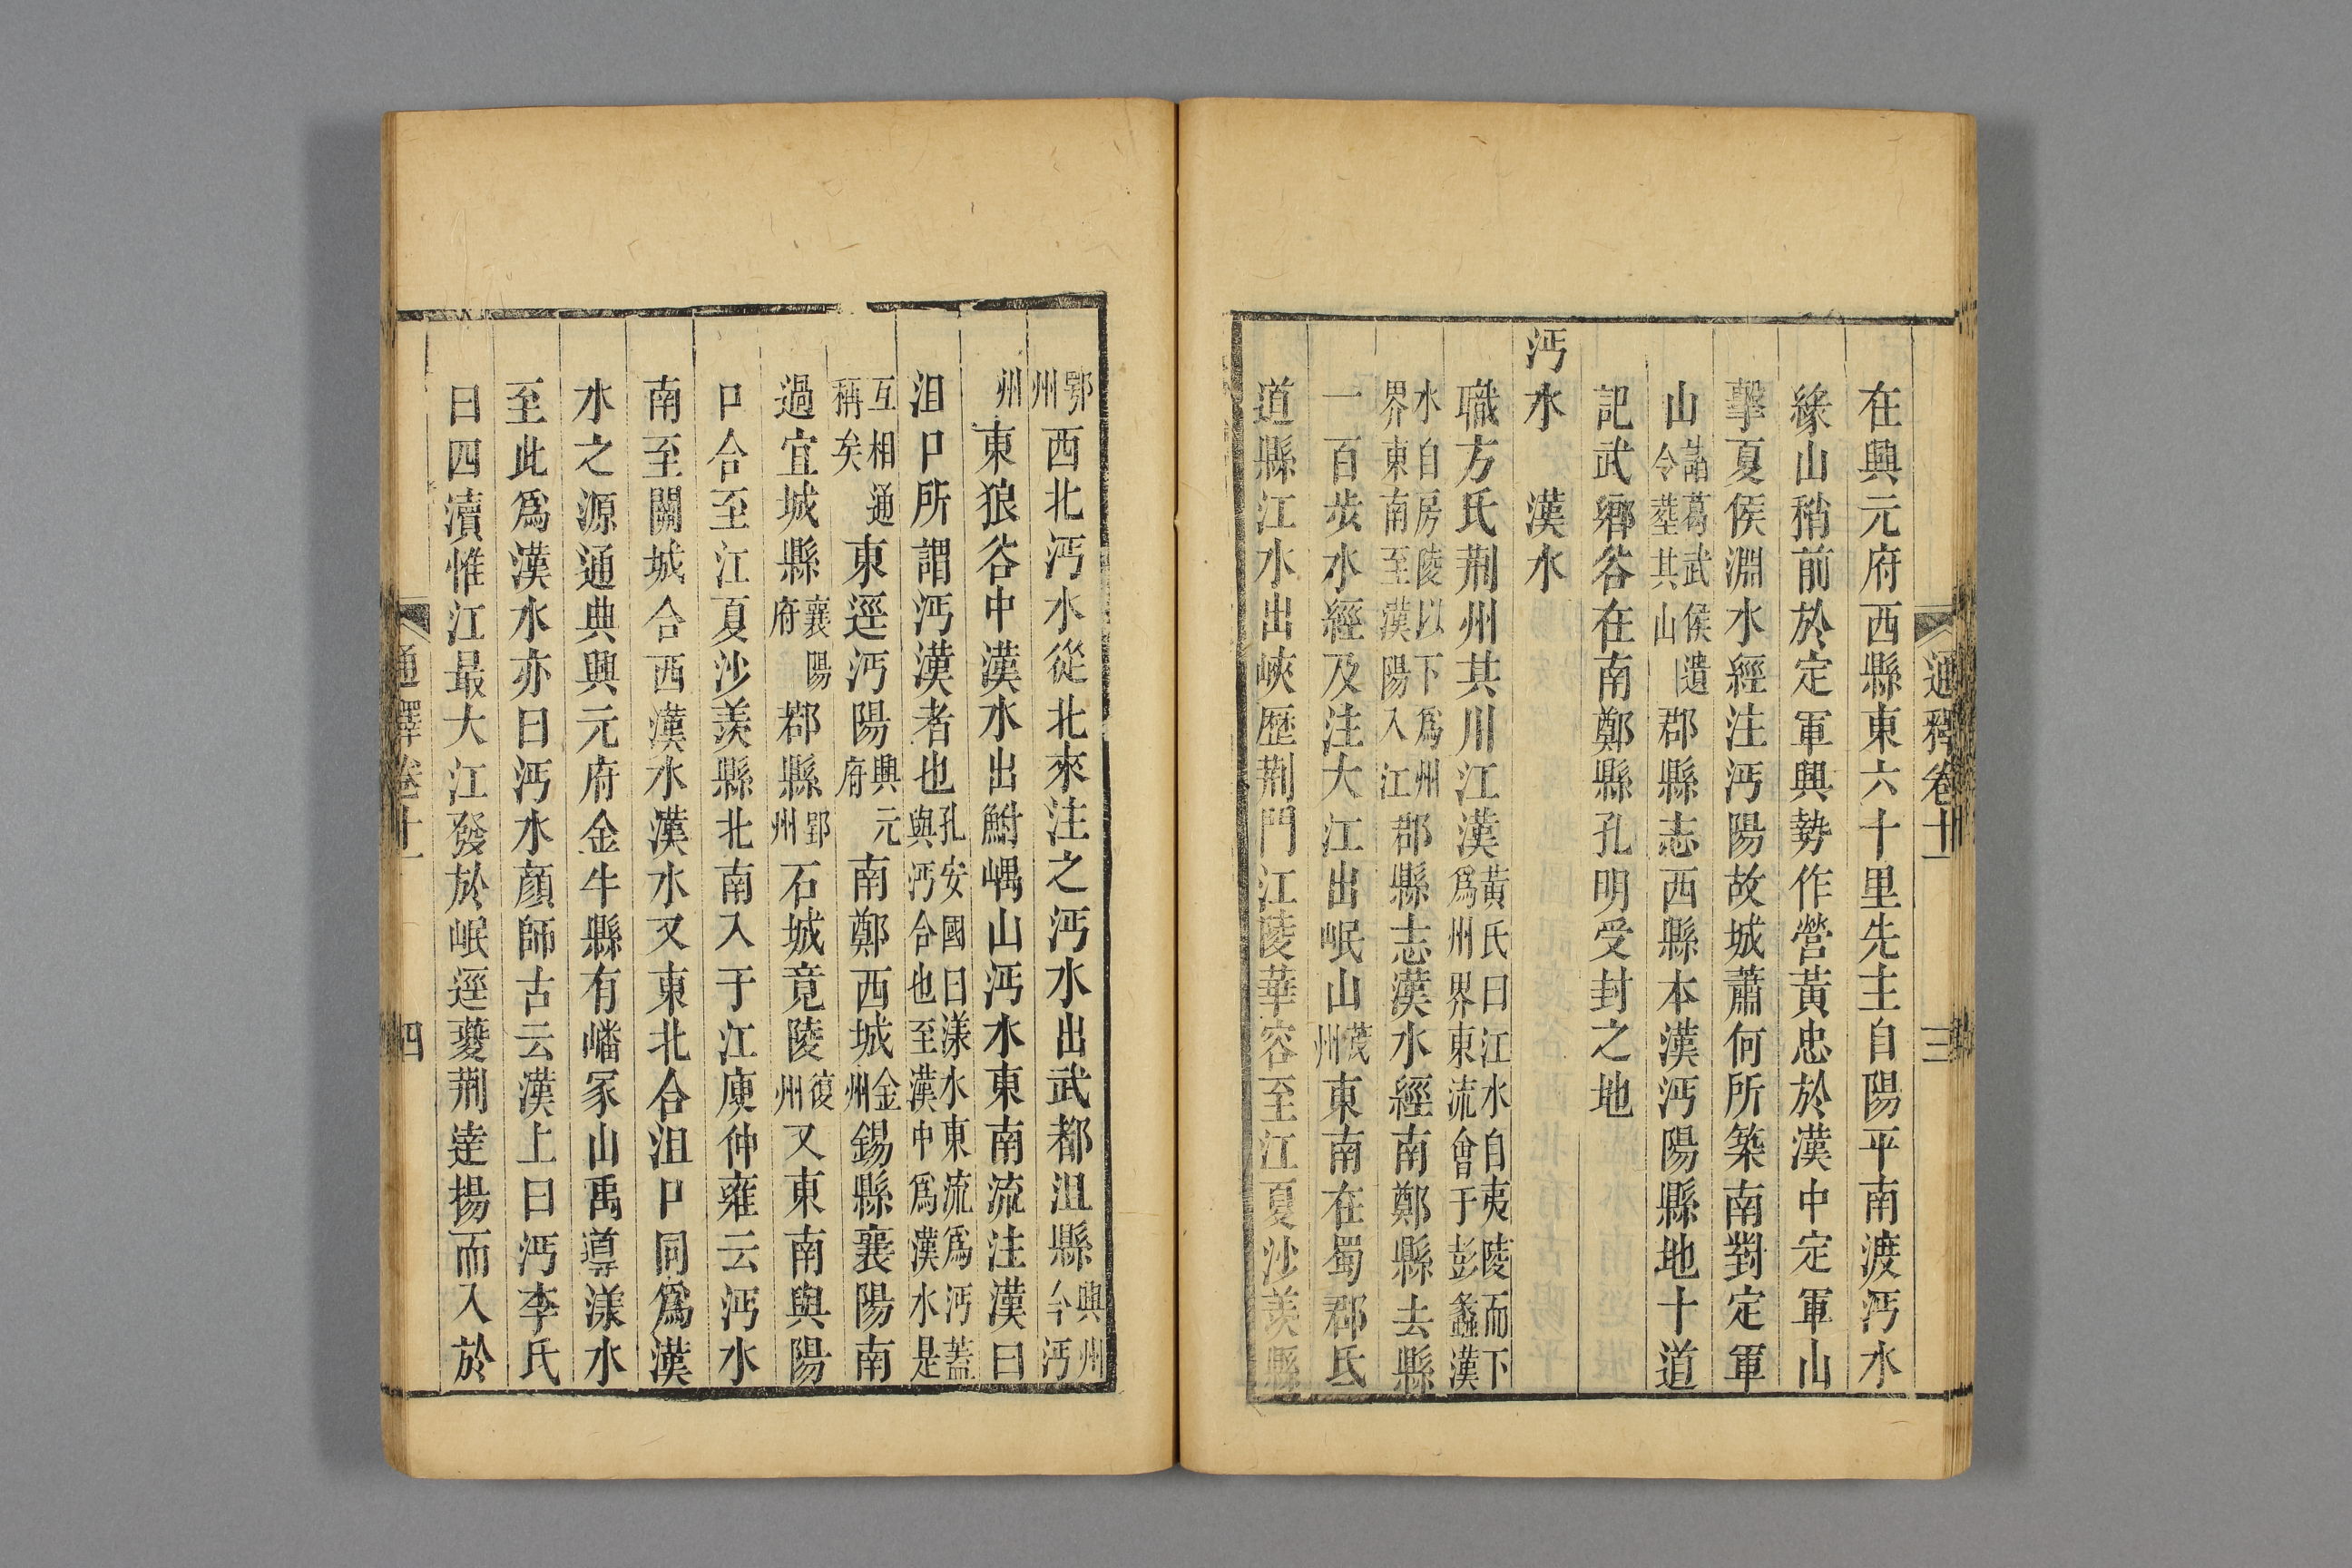 通釋卷十一 三
在興元府西縣東六十里先主自陽平南渡沔水
緣山稍前於定軍興勢作營黃忠於漢中定軍山
擊夏侯淵水經注沔陽故城蕭何所築南對定軍
山諸葛武侯遺令塟其山郡縣志西縣本漢沔陽縣地十道
記武鄉谷在南鄭縣孔明受封之地
沔水 漢水
職方氏荆州其川江漢黃氏曰江水自夷陵而下爲州界東流會于彭蠡漢
水自房陵以下爲州界東南至漢陽入江郡縣志漢水經南鄭縣去縣
一百步水經及注大江出岷山茂州東南在蜀郡氐
道縣江水出峽歷荆門江陵華容至江夏沙羨縣
鄂州西北沔水從北來注之沔水出武都沮縣興州今沔
州東狼谷中漢水出鮒嵎山沔水東南流注漢曰
沮口所謂沔漢者也孔安國曰漾水東流爲沔蓋與沔合也至漢中爲漢水是
互相通稱矣東逕沔陽興元府南鄭西城金州錫縣襄陽南
過宜城縣襄陽府鄀縣郢州石城竟陵復州又東南與陽
口合至江夏沙羨縣北南入于江庾仲雍云沔水
南至關城合西漢水漢水又東北合沮口同爲漢
水之源通典興元府金牛縣有嶓冢山禹導漾水
至此爲漢水亦曰沔水顏師古云漢上曰沔李氏
曰四瀆惟江最大江發於岷逕夔荆逹揚而入於
通釋卷十一 四